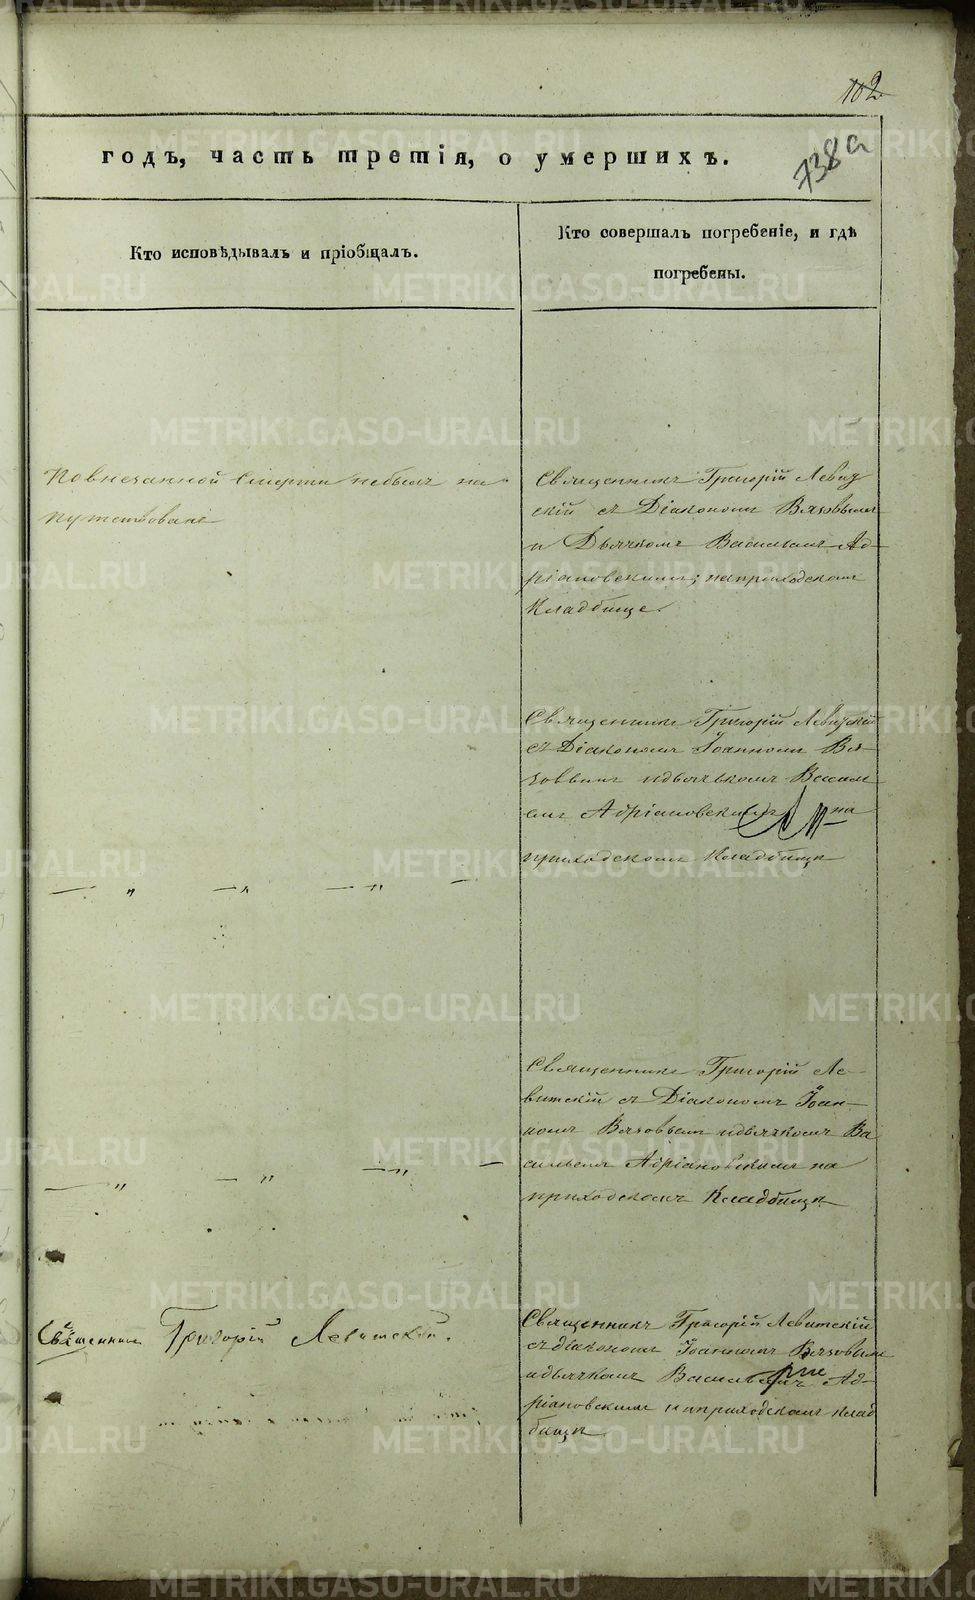 102
738а
годъ, часть третія, о умершихъ.
Кто исповѣдывалъ и пріобщалъ.
Кто совершалъ погребеніе, и гдѣ
погребены.
Повнезапной смерти небылъ на-
путствованъ
Священникъ Григорій Левид
скій съ Діакономъ Вязовымъ
и Дьячкомъ Васильемъ Ад-
ріановскимъ; наприходскомъ
Кладбище.
Священникъ Григорій Левитскій
съ Діакономъ Іоанномъ Вя-
зовымъ идьячькомъ Василь
емъ Адріановскимъ на
приходскомъ Кладбищѣ
— „ — „ — „ —
Священникъ Григорій Ле-
витскій съ Діакономъ Іоан-
номъ Вязовымъ идьячкомъ Ва
сильемъ Адріановскимъ на
приходскомъ Кладбищѣ
— „ — „ — „ —
Священникъ Григорій Левитскій.
Священникъ Григорій Левитскій
съ діакономъ Іоанномъ Вязовымъ
идьячкомъ Васильемъ Ад-
ріановскимъ наприходскомъ клад
бищѣ
METRIKI.GASO-URAL.RU